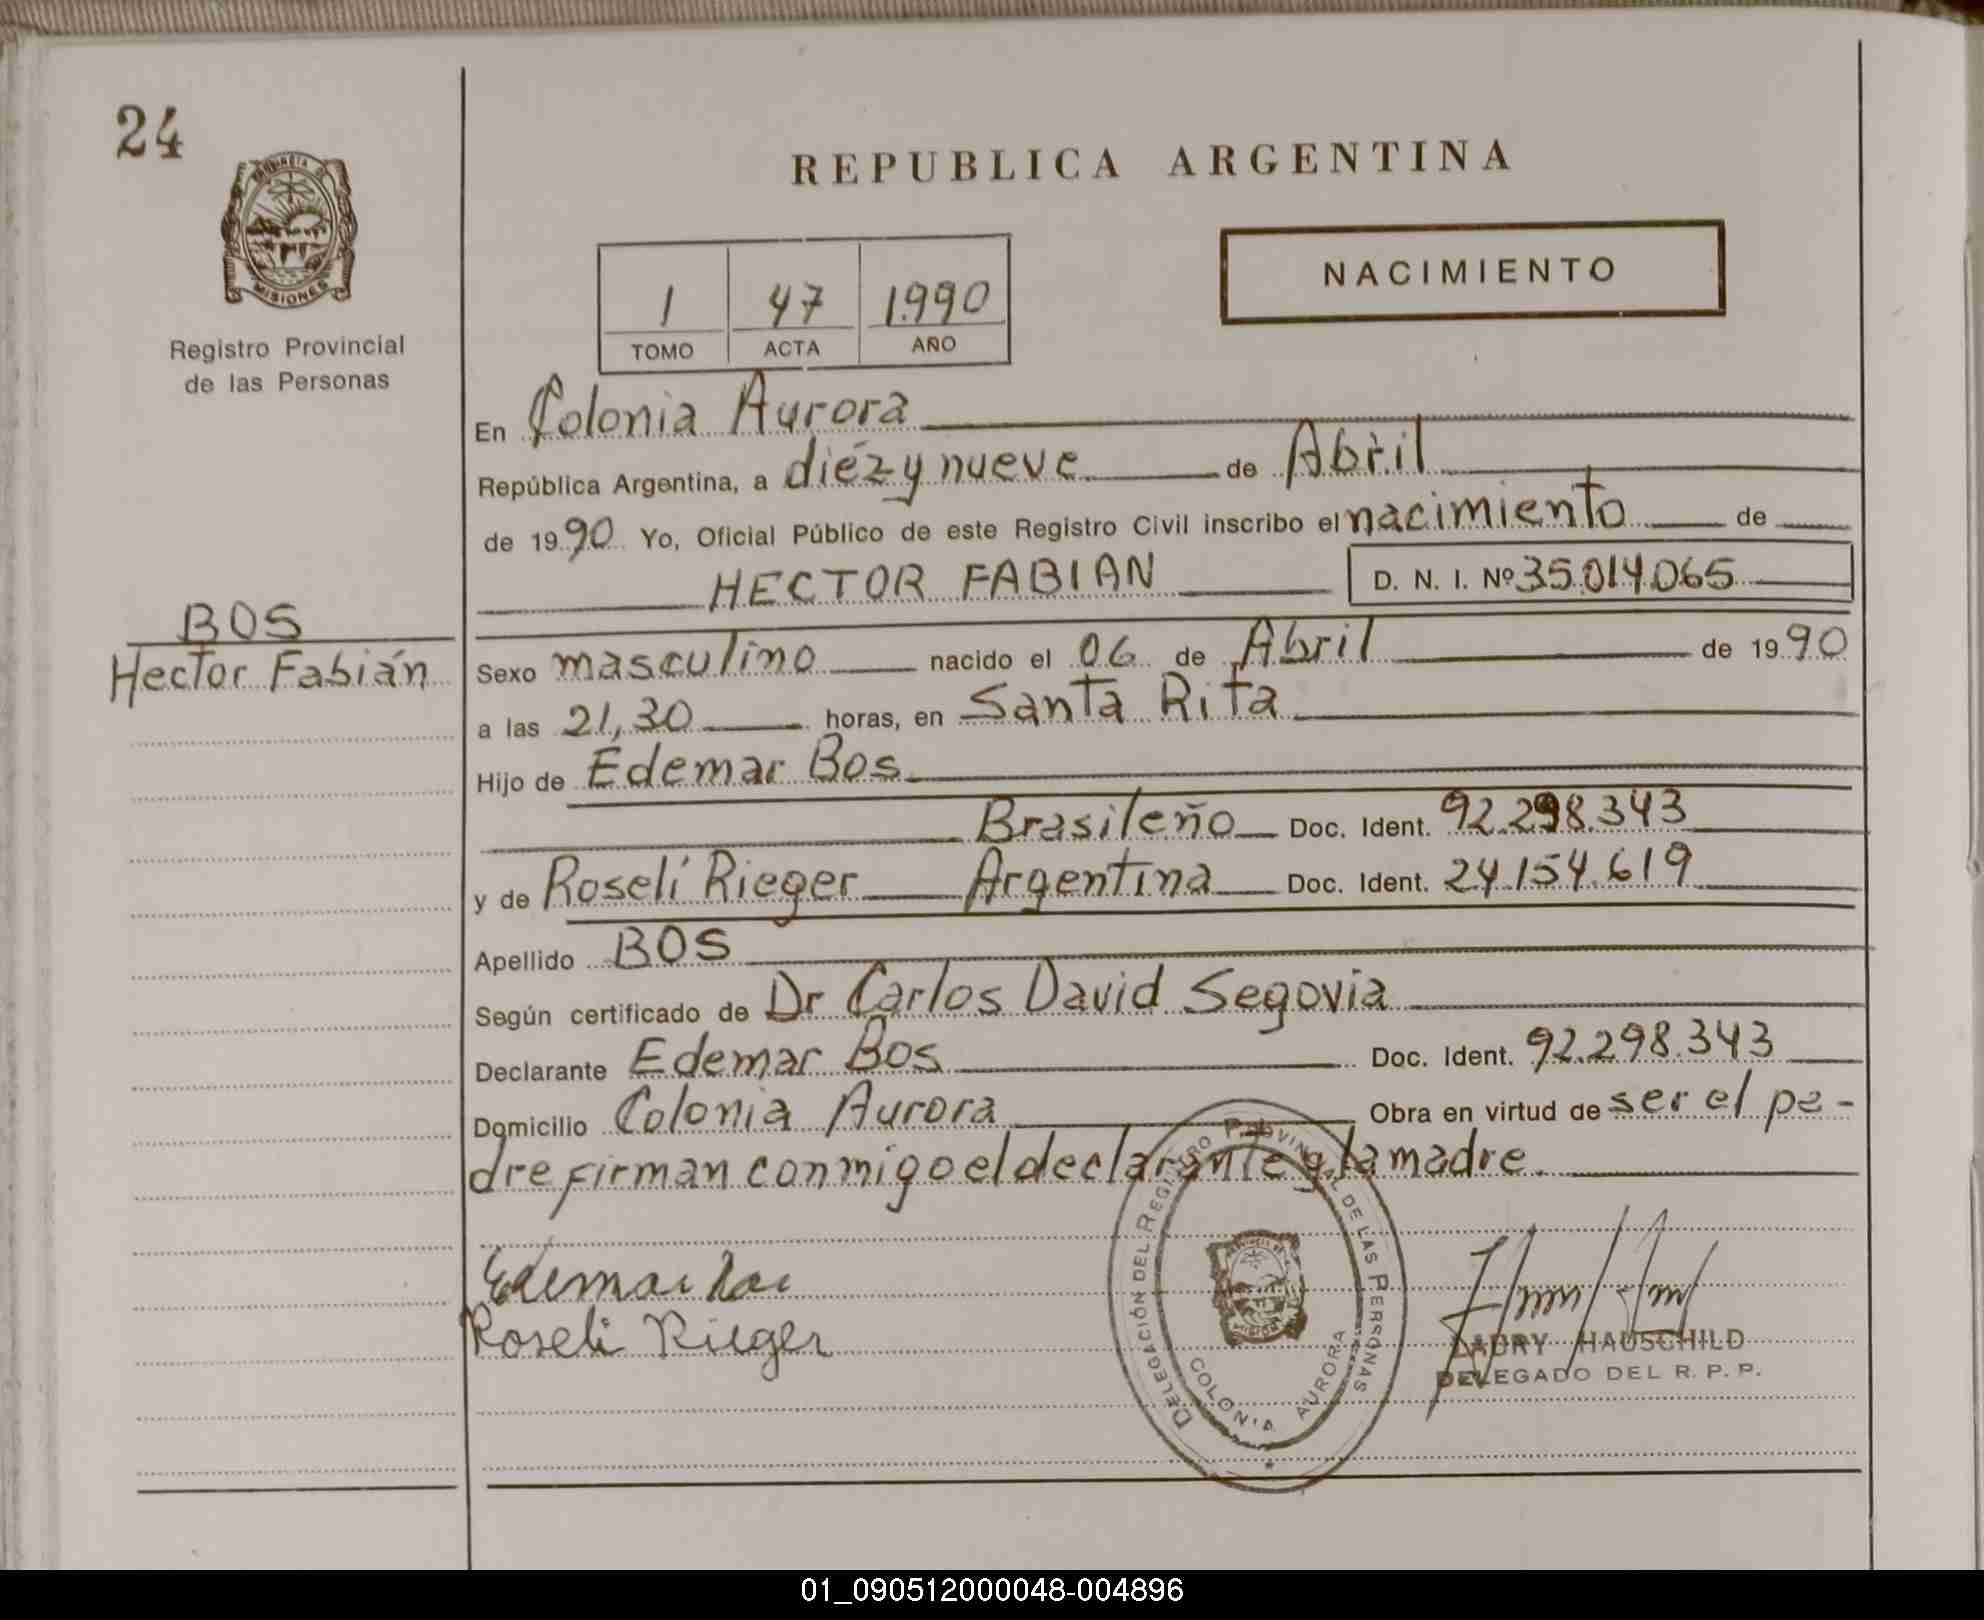 24
PROVINCIA DE
MISIONES
Registro Provincial
de las Personas
BOS
Hector Fabián
REPUBLICA ARGENTINA
NACIMIENTO
1 47 1.990
TOMO ACTA AÑO
En Colonia Aurora
República Argentina, a diéz y nueve de Abril
de 1990 Yo, Oficial Público de este Registro Civil inscribo el nacimiento de
HECTOR FABIAN D. N. I. Nº 35.014.065
Sexo masculino nacido el 06 de Abril de 1990
a las 21,30 horas, en Santa Rita
Hijo de Edemar Bos
Brasileño Doc. Ident. 92.298.343
y de Roselí Rieger Argentina Doc. Ident. 24.154.619
Apellido BOS
Según certificado de Dr Carlos David Segovia
Declarante Edemar Bos Doc. Ident. 92.298.343
Domicilio Colonia Aurora Obra en virtud de ser el pa-
dre firman conmigo el declarante y la madre.
DELEGACIÓN DEL REGISTRO PROVINCIAL DE LAS PERSONAS
COLONIA AURORA
Edemar Bos
Roseli Rieger
LADRY HAUSCHILD
DELEGADO DEL R. P. P.
01_090512000048-004896